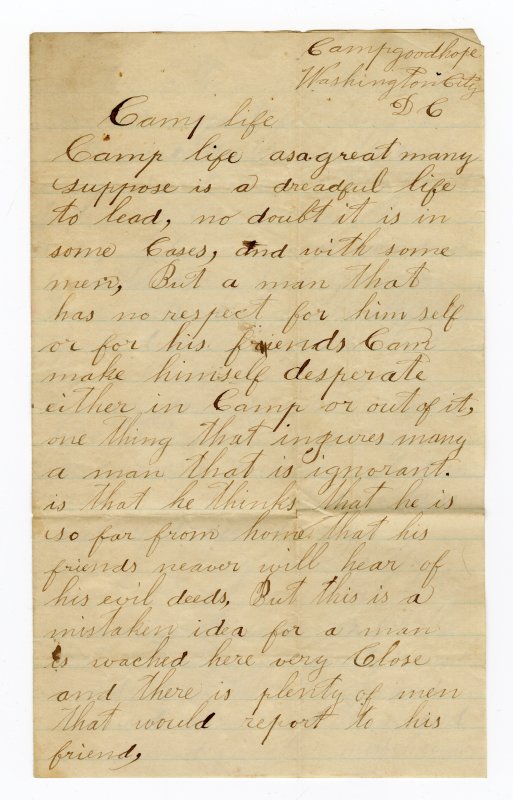 Campgoodhope
Washington City
D C
Camp life
Camp life as a great many
suppose is a dreadful life
to lead, no doubt it is in
some Cases, and with some
men, But a man that
has no respect for him self
or for his friends Can
make himself desperate
either in Camp or out of it,
one thing that ingures many
a man that is ignorant.
is that he thinks that he is
so far from home that his
friends neaver will hear of
his evil deeds, But this is a
mistaken idea for a man
is wached here very Close
and there is plenty of men
that would report to his
friend,